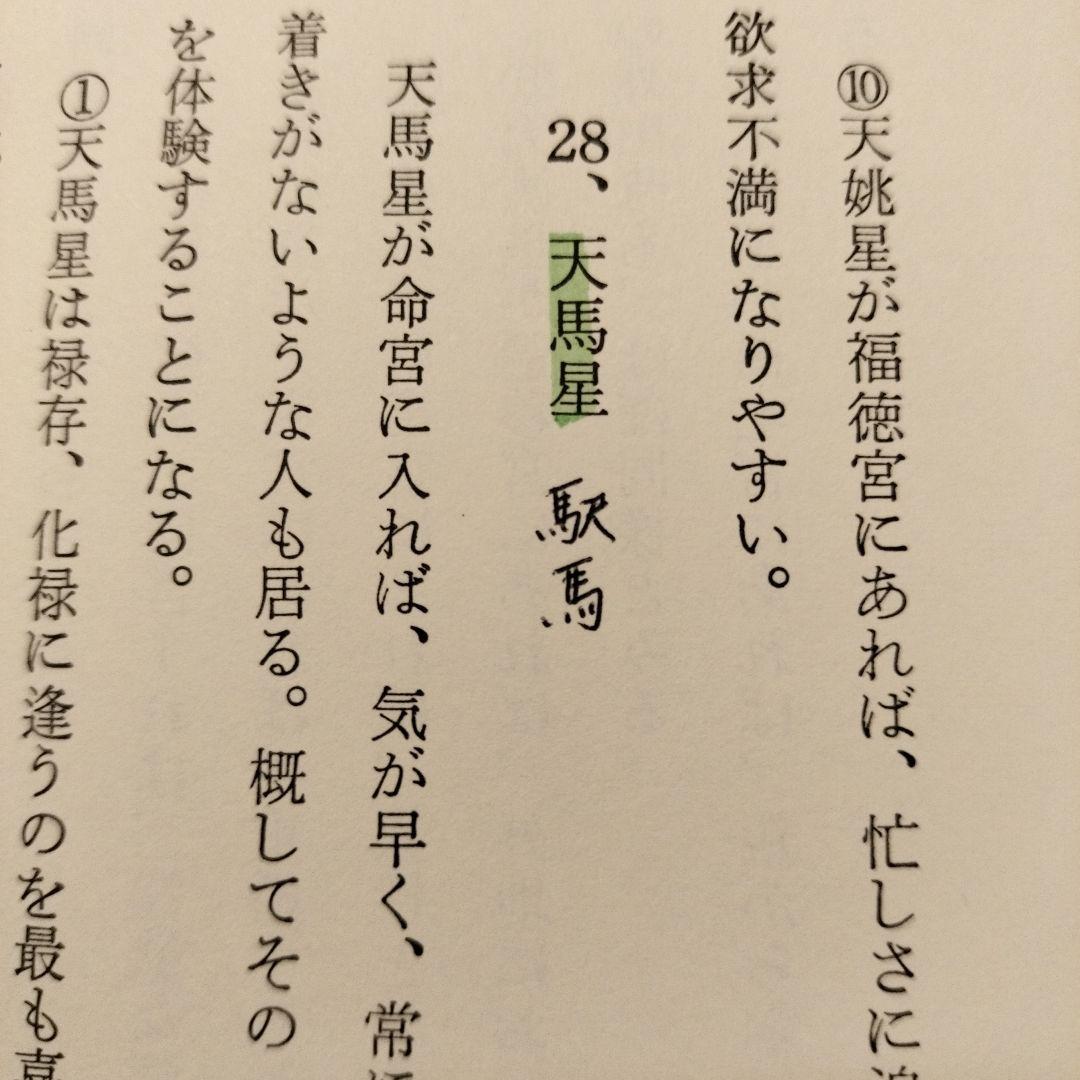 ⑩天姚星が福徳宮にあれば、忙しさに
欲求不満になりやすい。
28、天馬星 駅馬
天馬星が命宮に入れば、気が早く、常に
着きがないような人も居る。概してその
を体験することになる。
①天馬星は禄存、化禄に逢うのを最も喜